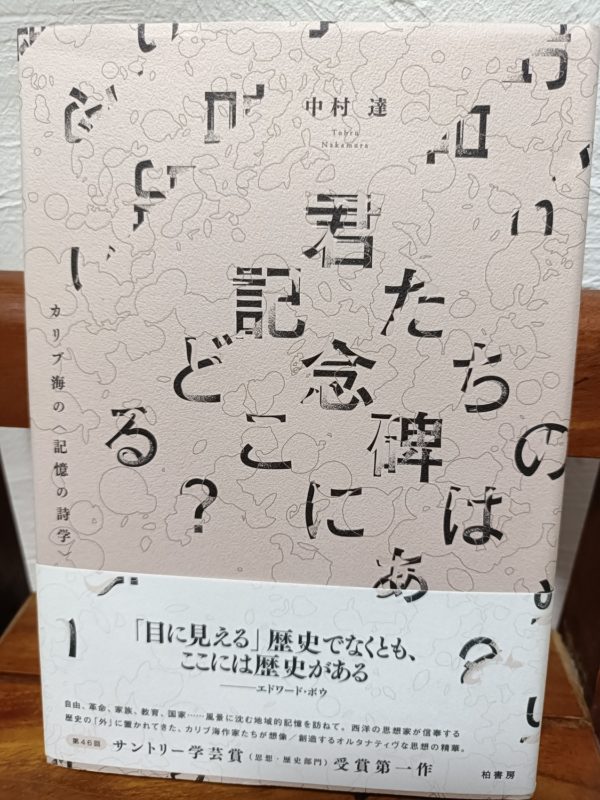 中村 達
Tohru
Nakamura
君たちの
記念碑は
どこにあ
る?
カリブ海の〈記憶の詩学〉
「目に見える」歴史でなくとも、
ここには歴史がある
――エドワード・ボウ
自由、革命、家族、教育、国家……風景に沈む地域的記憶を訪ねて。西洋の思想家が信奉する
歴史の「外」に置かれてきた、カリブ海作家たちが想像/創造するオルタナティヴな思想の精華。
第46回 サントリー学芸賞(思想・歴史部門)受賞第一作
柏書房